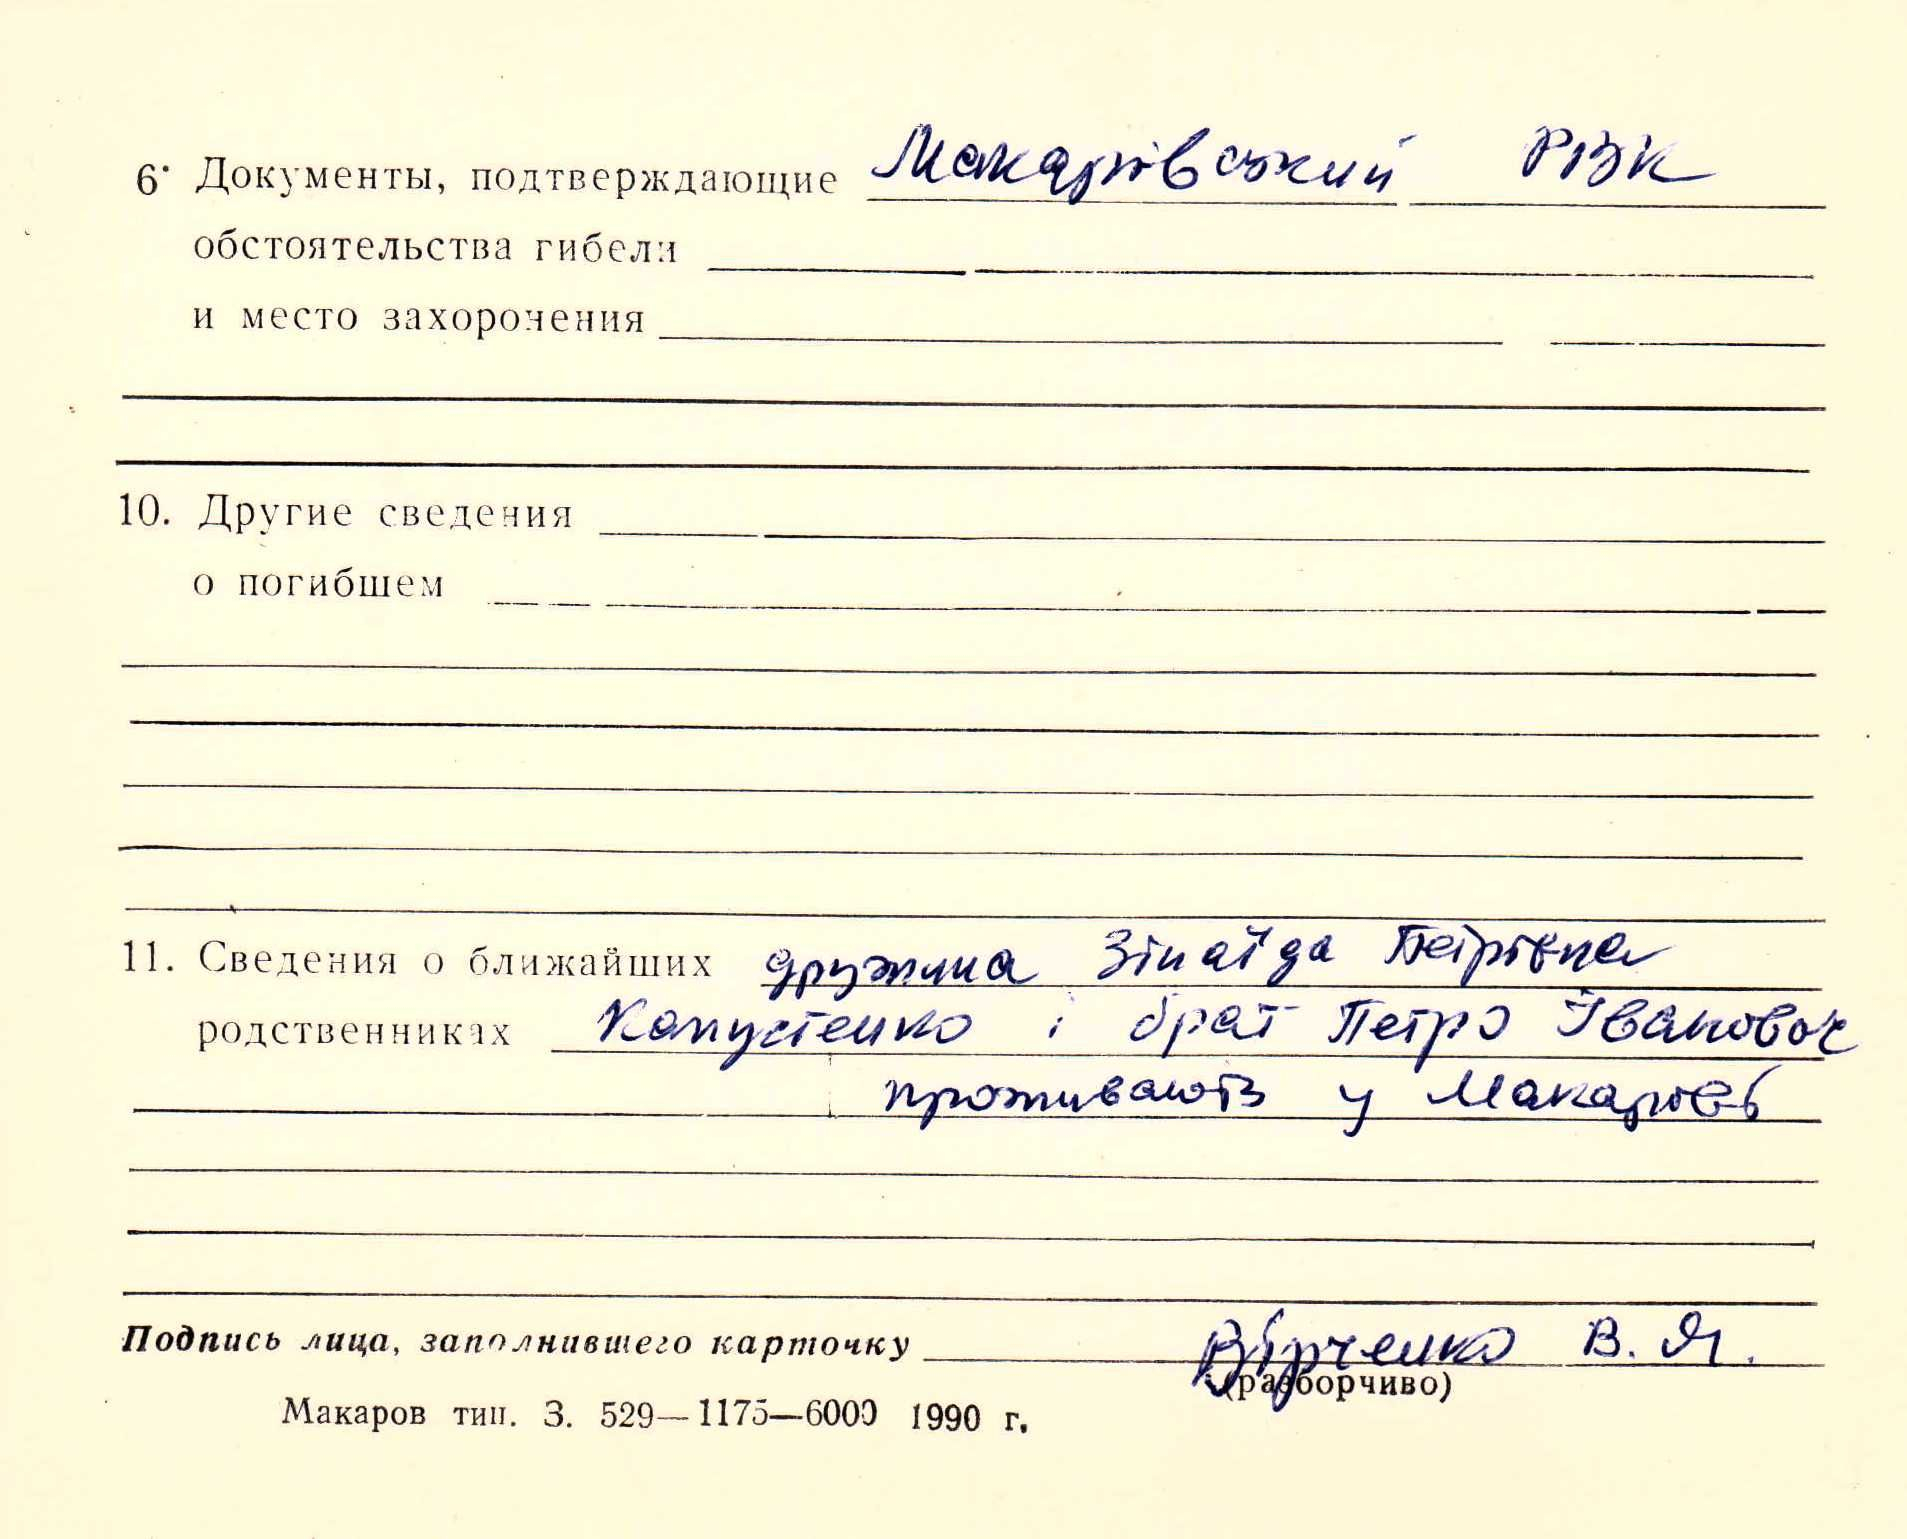 6. Документы, подтверждающие Макарівський РВК
обстоятельства гибели
и место захоронения
10. Другие сведения
о погибшем
11. Сведения о ближайших дружина Зінаїда Петрівна
родственниках Капустенко і брат Петро Іванович
проживають у Макарові
Подпись лица, заполнившего карточку Вірченко В. Я.
(разборчиво)
Макаров тип. З. 529—1175—6000 1990 г.